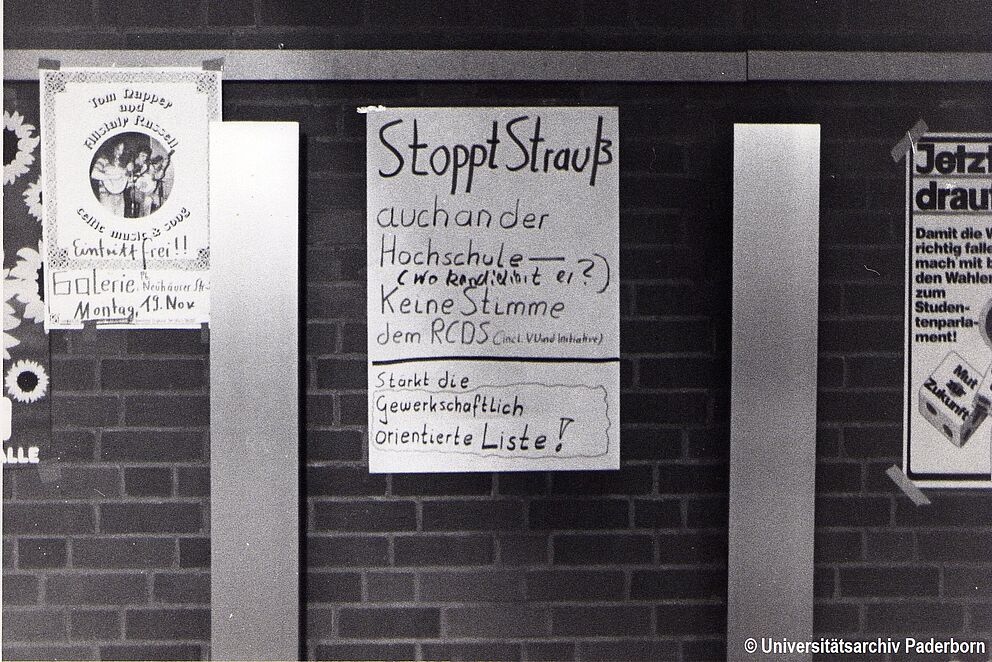 Tom Napper
and
Allstair Russell
celtic music & song
Eintritt frei!!
Galerie
Montag, 19. Nov
Stoppt Strauß
auch an der
Hochschule —
(wo kandidirt er?)
Keine Stimme
dem RCDS (incl. VU und Initiative)
Stärkt die
Gewerkschaftlich
orientierte Liste!
Jetzt
drau
Damit die W
richtig falle
mach mit b
den Wahlen
zum
Studen-
tenparla-
ment!
Mut
Zukunft
ALLE
© Universitätsarchiv Paderborn